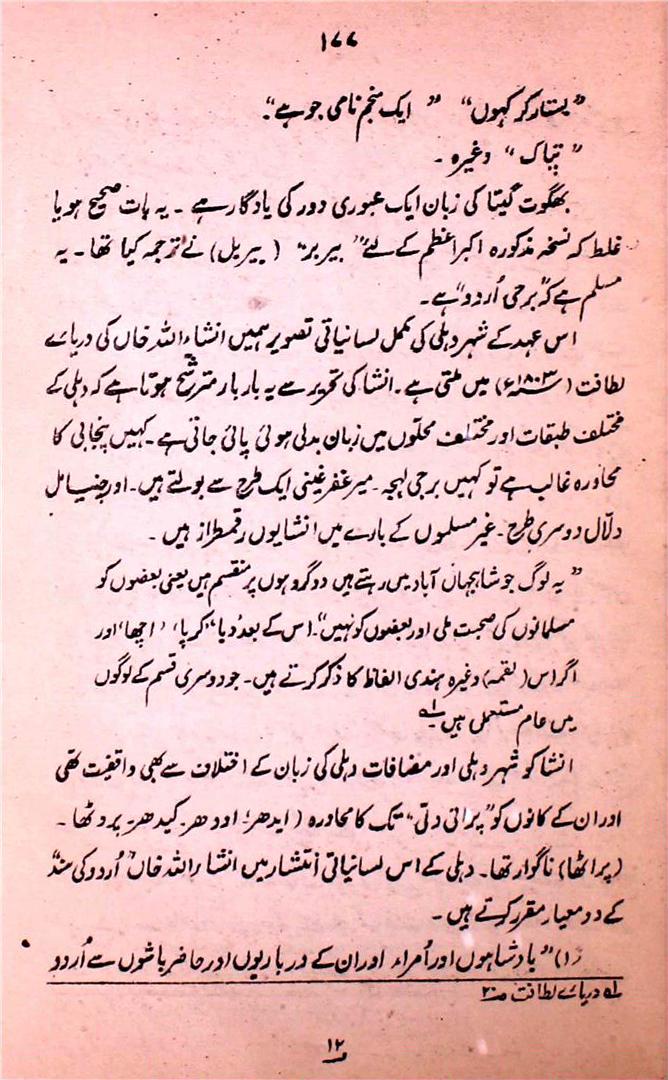 ۱۷۷
”بستار کر کہوں“ ” ایک منجم نامی جو ہے“۔
”تپاک“ وغیرہ ۔
بھگوت گیتا کی زبان ایک عبوری دور کی یادگار ہے ۔ یہ بات صحیح ہو یا
غلط کہ نسخہ مذکورہ اکبر اعظم کے لئے ”بیربر“ (بیربل) نے ترجمہ کیا تھا ۔ یہ
مسلم ہے کہ ”برجی اُردو“ ہے۔
اس عہد کے شہر دہلی کی مکمل لسانیاتی تصویر ہمیں انشاء اللہ خاں کی دریائے
لطافت (۱۸۰۳ء) میں ملتی ہے ۔ انشا کی تحریر سے یہ بار بار مترشح ہوتا ہے کہ دہلی کے
مختلف طبقات اور مختلف محلوں میں زبان بدلی ہوئی پائی جاتی ہے ۔ کہیں پنجابی کا
محاورہ غالب ہے تو کہیں برجی لہجہ ۔ میر غفر غینی ایک طرح سے بولتے ہیں ۔ اور چنیا مل
دلّال دوسری طرح ۔ غیر مسلموں کے بارے میں انشا یوں رقمطراز ہیں ۔
”یہ لوگ جو شاہجہاں آباد میں رہتے ہیں دو گروہوں پر منقسم ہیں یعنی بعضوں کو
مسلمانوں کی صحبت ملی اور بعضوں کو نہیں“۔ اس کے بعد دیا ”کرپا“ ’اچھا‘ اور
اگر اس (لقمہ) وغیرہ ہندی الفاظ کا ذکر کرتے ہیں ۔ جو دوسری قسم کے لوگوں
میں عام مستعملی ہیں ۔ لہ
انشا کو شہر دہلی اور مضافات دہلی کی زبان کے اختلاف سے بھی واقفیت تھی
اور ان کے کانوں کو ”پراتی دتی“ تک کا محاورہ (ایدھر؛ اودھر ۔ کیدھر ۔ پروٹھا ۔
(پراٹھا) ناگوار تھا ۔ دہلی کے اس لسانیاتی انتشار میں انشا راللہ خاں اُردو کی سند
کے دو معیار مقرر کرتے ہیں ۔
(۱) ”بادشاہوں اور اُمراء اور ان کے درباریوں اور حاضر باشوں سے اُردو
لہ دریائے لطافت ص۲۰
۱۲